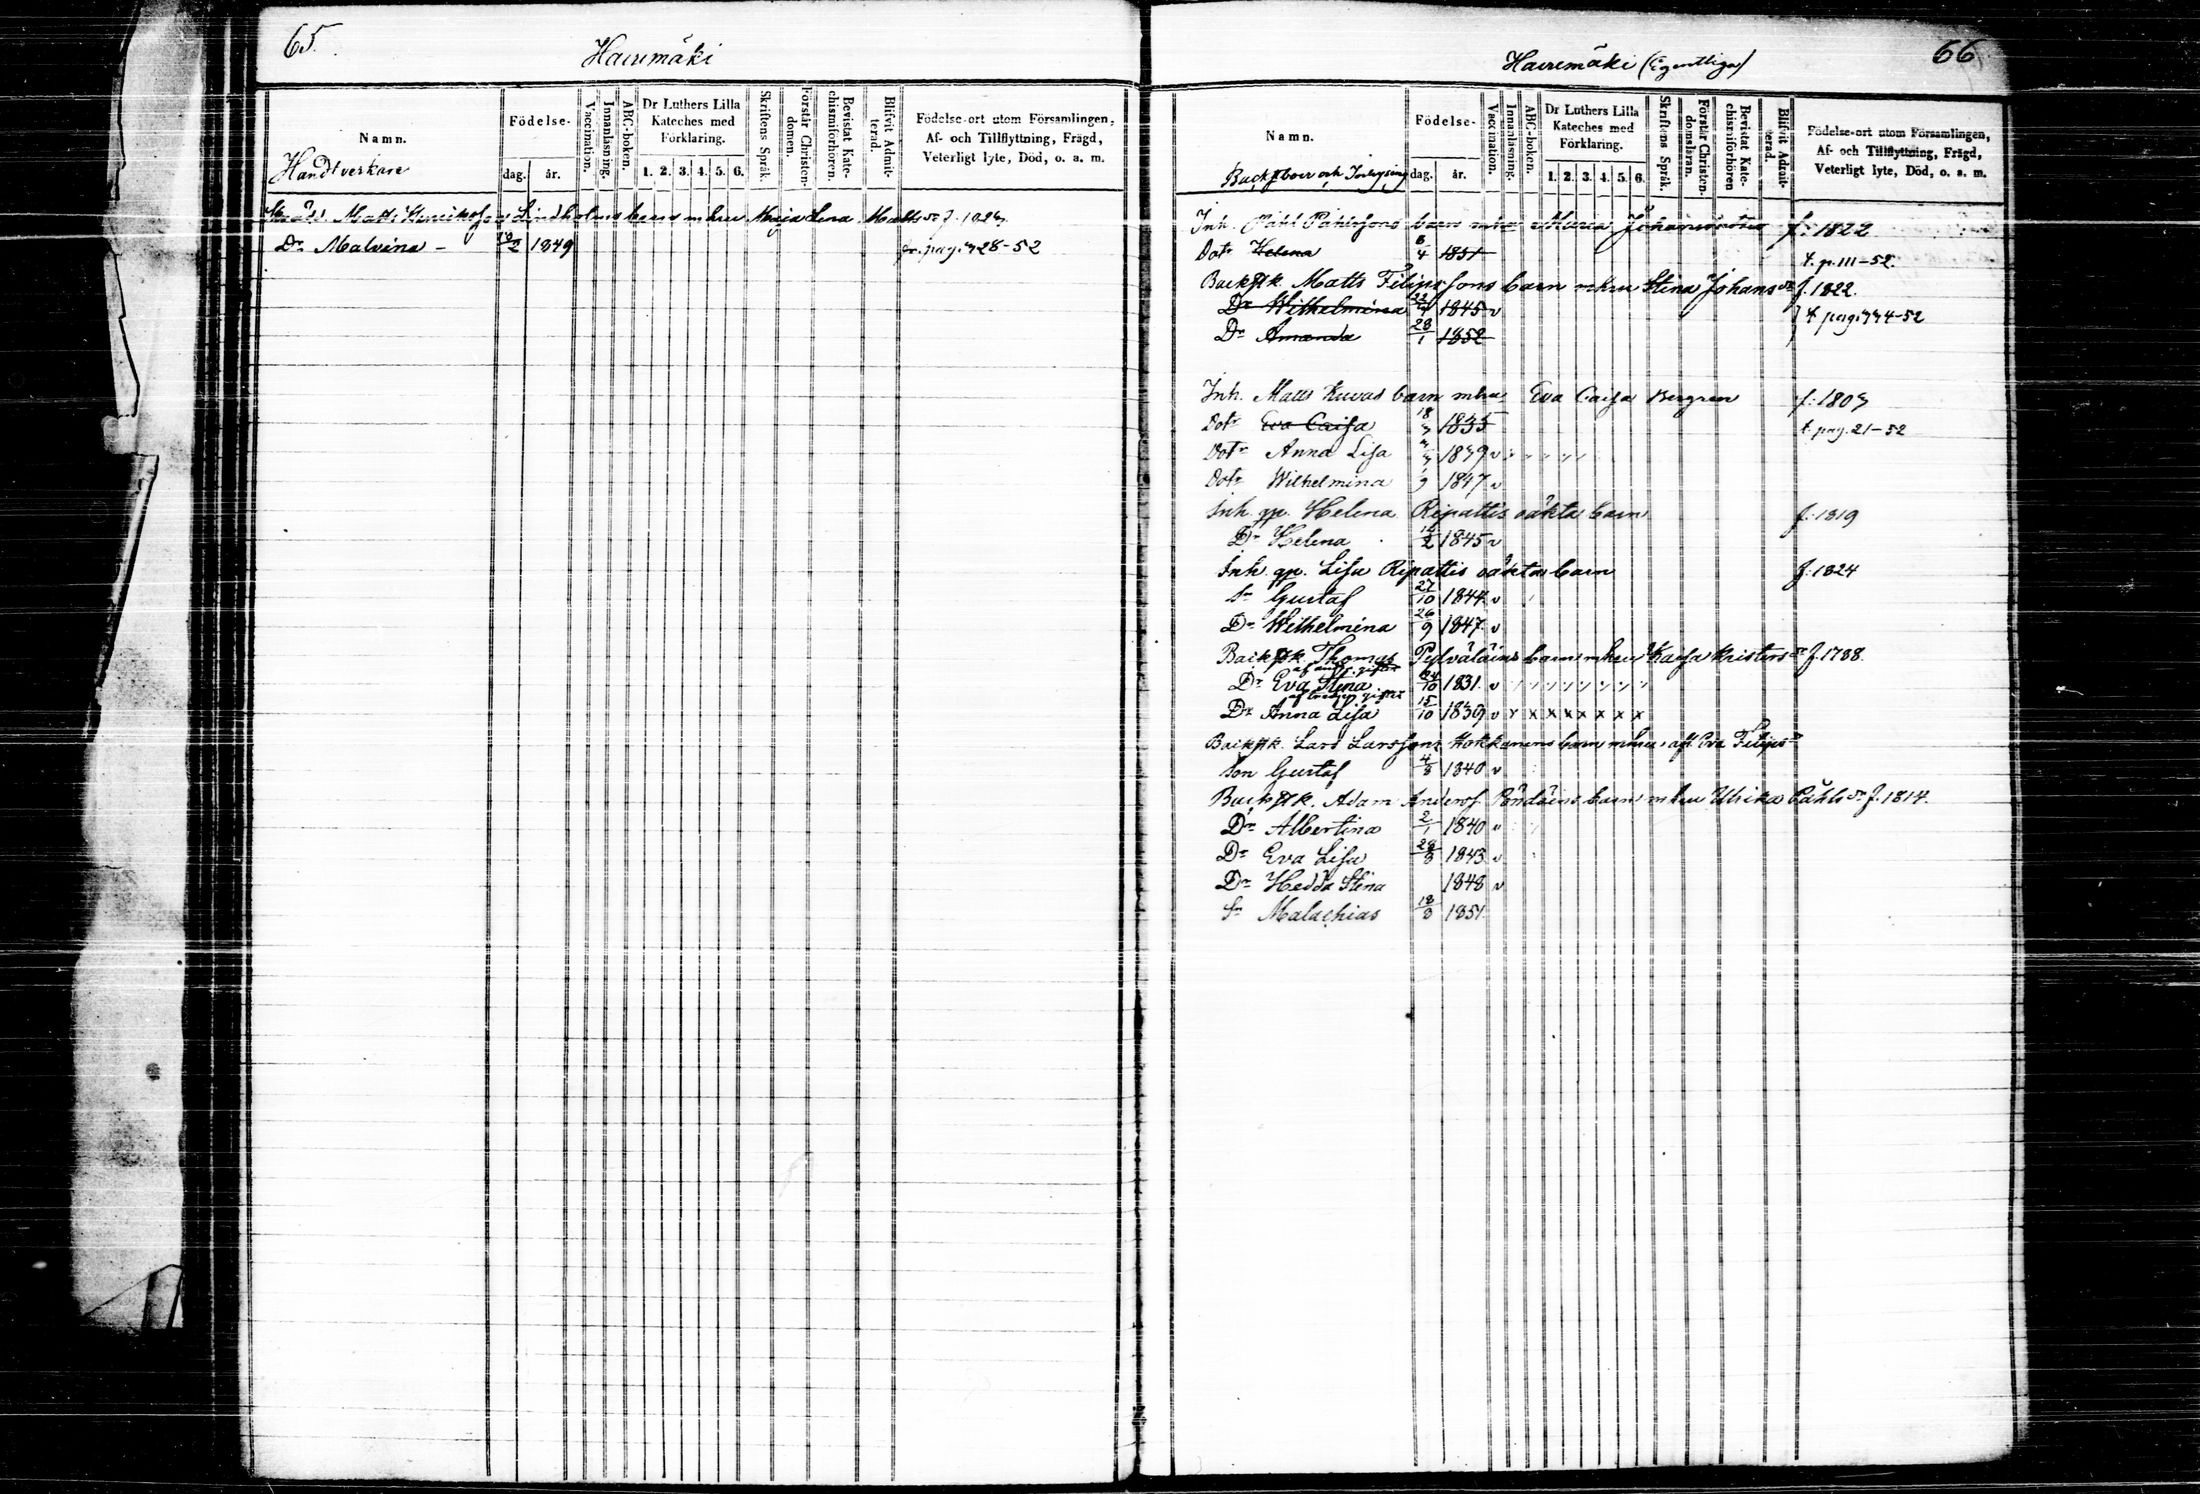 65.
Haurumäki
Namn.
Handtverkare
Födelse-
dag. år.
Vaccination.
Innanläsning.
ABC-boken.
Dr Luthers Lilla
Kateches med
Förklaring.
1. 2. 3. 4. 5. 6.
Skriftens Språk.
Förstår Christen-
domen.
Bevistat Kate-
chismiförhören.
Blifvit Admit-
terad.
Födelse-ort utom Församlingen,
Af- och Tillflyttning, Frägd,
Veterligt lyte, Död, o. a. m.
Matts Lindholms barn m hru Maja Lena Matts dr
Dr Malvina - 1849 pag. 728-52
66
Haurumäki (Egentliga)
Namn.
Backstboer och
Födelse-
dag. år.
Vaccination.
Innanläsning.
ABC-boken.
Dr Luthers Lilla
Kateches med
Förklaring.
1. 2. 3. 4. 5. 6.
Skriftens Språk.
Förstår Christen-
domsläran.
Bevistat Kate-
chismiförhören
Blifvit Admit-
terad.
Födelse-ort utom Församlingen,
Af- och Tillflyttning, Frägd,
Veterligt lyte, Död, o. a. m.
Inh. Påhl Påhlssons barn mhu Maria Johansdotter f: 1822
Dotr Helena 8/4 1851 t. p. 111-52.
Backstk. Matts Filipssons barn mhru Stina Johans dr f. 1822.
Dr Wilhelmina 1845 v t. pag. 774-52
Dr Amanda 28/1 1852
Inh. Matts Kuvas barn mhu Eva Caisa Bergren f: 1807
Dotr Eva Caisa 18/7 1835 t. pag. 21-52
Dotr Anna Lisa 1839 v
Dotr Wilhelmina 1847 v
Inh. qp. Helena Ripattis oäkta barn f: 1819
Dr Helena 1845 v
Inh qp. Lisa Ripattis oäkta barn f: 1824
Sn Gustaf 27/10 1844 v
Dr Wilhelmina 26/9 1847 v
Backstk. Thomas Pylväläins barn mhru Kaisa Kristers dr f. 1788.
af andr. giftet
Dr Eva Stina 24/10 1831 v
af tredje giftet
Dr Anna Lisa 15/10 1839 v x x x x x x x
Backstk. Lars Larssons Kokkonens barn mhru afl. Eva Filips dr
Son Gustaf 4/8 1840 v
Backstk. Adam Anderss. Pöndäins barn mhru Ulrika Påhls dr f. 1814.
Dr Albertina 2/1 1840 v
Dr Eva Lisa 28/8 1843 v
Dr Hedda Stina 1848 v
Sn Malachias 18/8 1851.